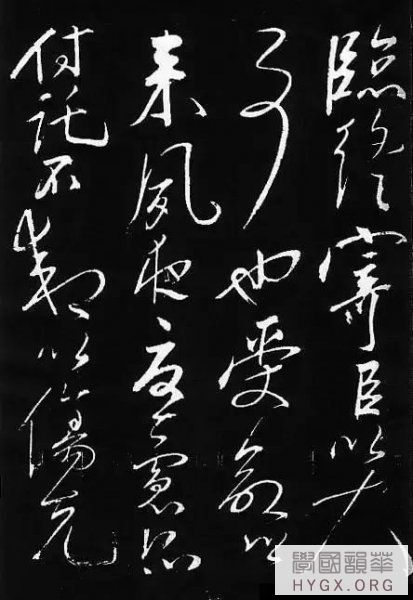 臨終寄臣以大
事也受命以
来夙夜憂慮恐
付託不效以傷先
華韻國學
HYGX.ORG